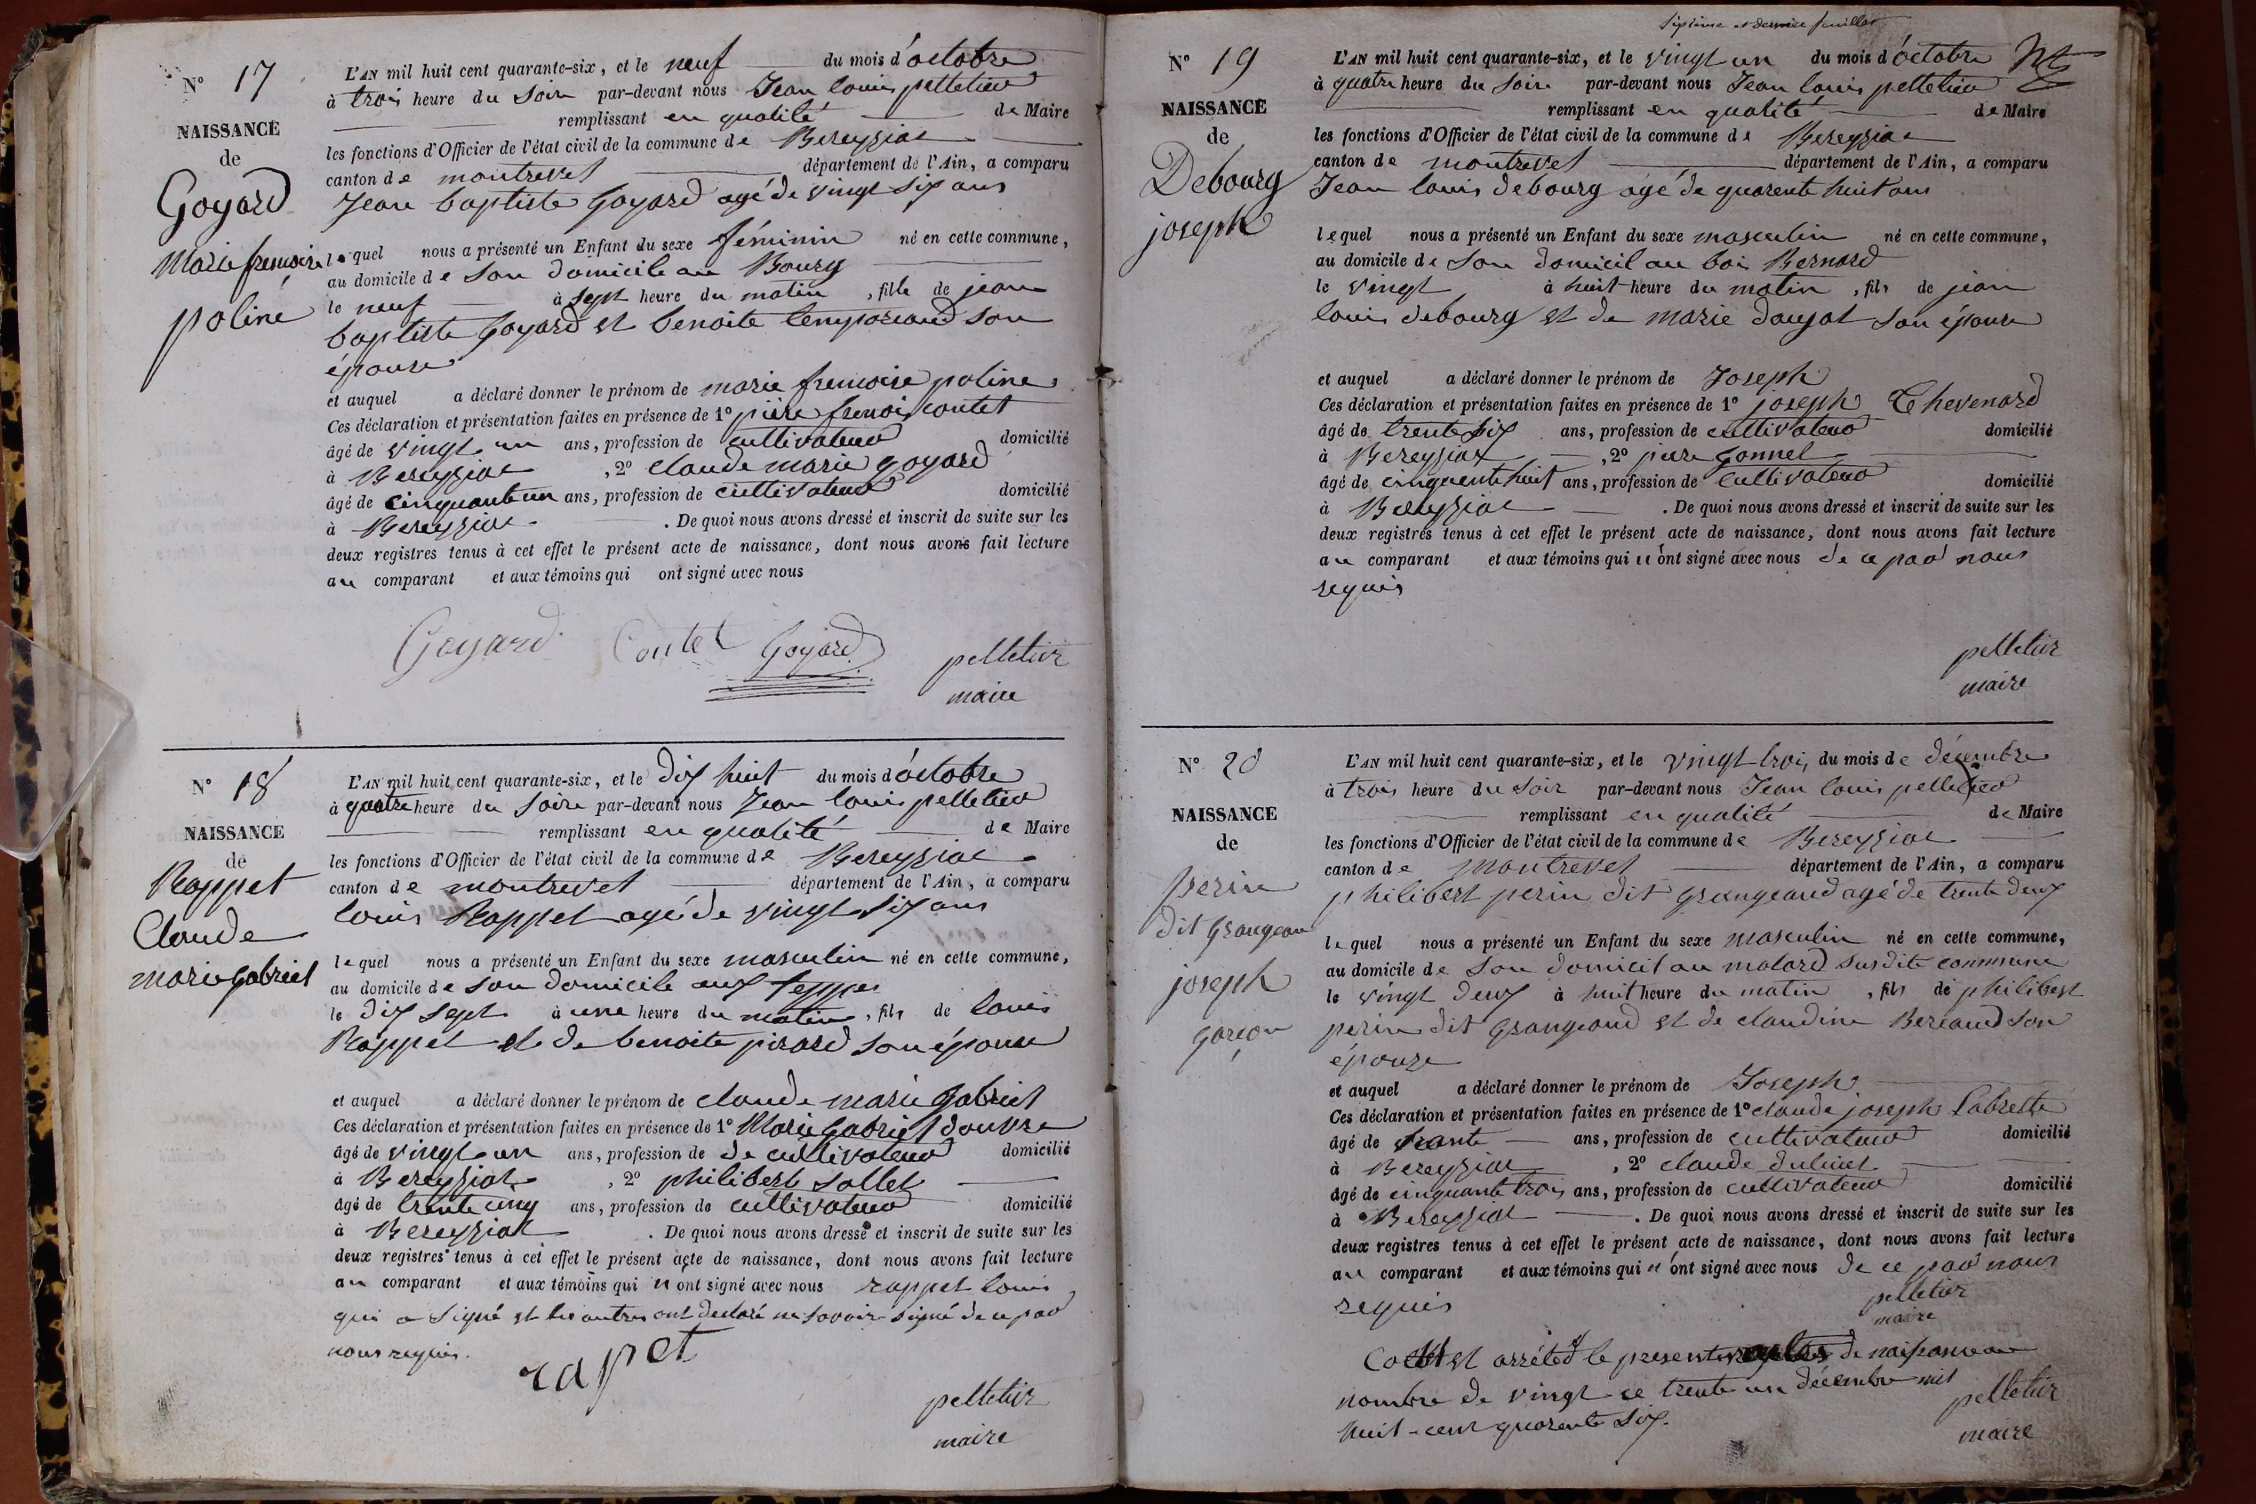 N° 17
NAISSANCE
de
Goyard
Marie frencoise
poline
L'AN mil huit cent quarante-six, et le neuf du mois d'octobre
à trois heure du Soire par-devant nous Jean louis pelletier
remplissant en qualité de Maire
les fonctions d'Officier de l'état civil de la commune de Bereyziat
canton de montrevel département de l'Ain, a comparu
Jean baptiste Goyard agé de vingt six ans
lequel nous a présenté un Enfant du sexe féminin né en cette commune,
au domicile de Son domicile au Bourg
le neuf à sept heure du matin, fille de jean
baptiste Goyard et benoite temporeaud son
épouse
et auquel a déclaré donner le prénom de marie frencoise poline
Ces déclaration et présentation faites en présence de 1° piere frencois contet
âgé de vingt un ans, profession de cultivateur domicilié
à Bereyziat, 2° claude marie goyard
âgé de cinquante un ans, profession de cultivateur domicilié
à Bereyziat. De quoi nous avons dressé et inscrit de suite sur les
deux registres tenus à cet effet le présent acte de naissance, dont nous avons fait lecture
au comparant et aux témoins qui ont signé avec nous
Goyard Contet Goyard pelletier
maire
N° 18
NAISSANCE
de
Rappet
Claude
marie gabriel
L'AN mil huit cent quarante-six, et le dix huit du mois d'octobre
à quatre heure du Soire par-devant nous Jean louis pelletier
remplissant en qualité de Maire
les fonctions d'Officier de l'état civil de la commune de Bereyziat
canton de montrevel département de l'Ain, a comparu
louis Rappet agé de vingt six ans
lequel nous a présenté un Enfant du sexe masculin né en cette commune,
au domicile de son domicile aux teppes
le dix sept à une heure du matin, fils de louis
Rappet et de benoite pirard son épouse
et auquel a déclaré donner le prénom de claude marie gabriel
Ces déclaration et présentation faites en présence de 1° Marie Gabriel douvre
âgé de vingt un ans, profession de de cultivateur domicilié
à Bereyziat, 2° philibert sollet
âgé de trente cinq ans, profession de cultivateur domicilié
à Bereyziat. De quoi nous avons dressé et inscrit de suite sur les
deux registres tenus à cet effet le présent acte de naissance, dont nous avons fait lecture
au comparant et aux témoins qui n'ont signé avec nous rappet louis
qui a signé et les autres ont declaré ne savoir signé de ce par
nous requis.
rapet
pelletier
maire
Séptième et dernier feuillet
N° 19
NAISSANCE
de
Debourg
joseph
L'AN mil huit cent quarante-six, et le vingt un du mois d'octobre
à quatre heure du Soire par-devant nous Jean louis pelletier
remplissant en qualité de Maire
les fonctions d'Officier de l'état civil de la commune de Bereyziat
canton de montrevel département de l'Ain, a comparu
Jean louis debourg agé de quarente huit ans
lequel nous a présenté un Enfant du sexe masculin né en cette commune,
au domicile de Son domicil au bois Bernard
le vingt à huit heure du matin, fils de jean
louis debourg et de marie donjat son épouse
et auquel a déclaré donner le prénom de Joseph
Ces déclaration et présentation faites en présence de 1° joseph Thevenard
âgé de trente six ans, profession de cultivateur domicilié
à Bereyziat, 2° piere gonnet
âgé de cinquente huit ans, profession de cultivateur domicilié
à Bereyziat. De quoi nous avons dressé et inscrit de suite sur les
deux registres tenus à cet effet le présent acte de naissance, dont nous avons fait lecture
au comparant et aux témoins qui n'ont signé avec nous de ce par nous
requis
pelletier
maire
N° 20
NAISSANCE
de
perin
dit Grangeau
joseph
garçon
L'AN mil huit cent quarante-six, et le vingt trois du mois de décembre
à trois heure du Soir par-devant nous Jean louis pelletier
remplissant en qualité de Maire
les fonctions d'Officier de l'état civil de la commune de Bereyziat
canton de montrevel département de l'Ain, a comparu
philibert perin dit grangeaud agé de trente deux
lequel nous a présenté un Enfant du sexe masculin né en cette commune,
au domicile de Son domicil au molard susdite commune
le vingt deux à huit heure du matin, fils de philibert
perin dit grangeaud et de claudine Bereaud son
épouze
et auquel a déclaré donner le prénom de Joseph
Ces déclaration et présentation faites en présence de 1° claude joseph Labrette
âgé de trante ans, profession de cultivateur domicilié
à Bereyziat, 2° claude
âgé de cinquante trois ans, profession de cultivateur domicilié
à Bereyziat. De quoi nous avons dressé et inscrit de suite sur les
deux registres tenus à cet effet le présent acte de naissance, dont nous avons fait lecture
au comparant et aux témoins qui n'ont signé avec nous de ce par nous
requis
pelletier
maire
et arrété le present de naissance au
nombre de vingt ce trente un décembre mil
huit-cent quarente six.
pelletier
maire